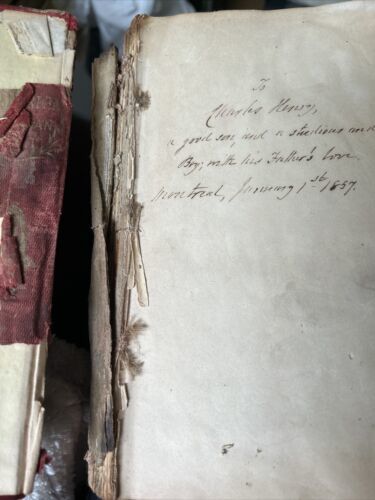 To
Charles Henry,
a good son, and a studious and
Boy; with his Father's love.
Montreal, January 1st 1857.